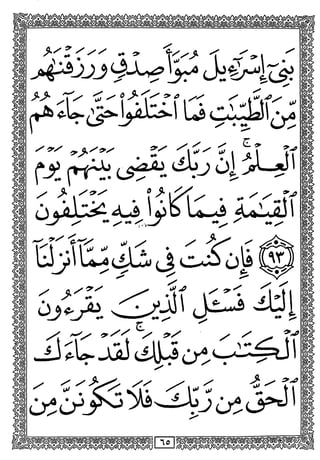 بَنِيٓ إِسْرَٰٓءِيلَ مُبَوَّأَ صِدْقٍ وَرَزَقْنَٰهُم
مِّنَ ٱلطَّيِّبَٰتِ فَمَا ٱخْتَلَفُوا۟ حَتَّىٰ جَآءَهُمُ
ٱلْعِلْمُ ۚ إِنَّ رَبَّكَ يَقْضِى بَيْنَهُمْ يَوْمَ
ٱلْقِيَٰمَةِ فِيمَا كَانُوا۟ فِيهِ يَخْتَلِفُونَ
﴿٩٣﴾ فَإِن كُنتَ فِى شَكٍّ مِّمَّآ أَنزَلْنَآ
إِلَيْكَ فَسْـَٔلِ ٱلَّذِينَ يَقْرَءُونَ
ٱلْكِتَٰبَ مِن قَبْلِكَ ۚ لَقَدْ جَآءَكَ
ٱلْحَقُّ مِن رَّبِّكَ فَلَا تَكُونَنَّ مِنَ
٦٥